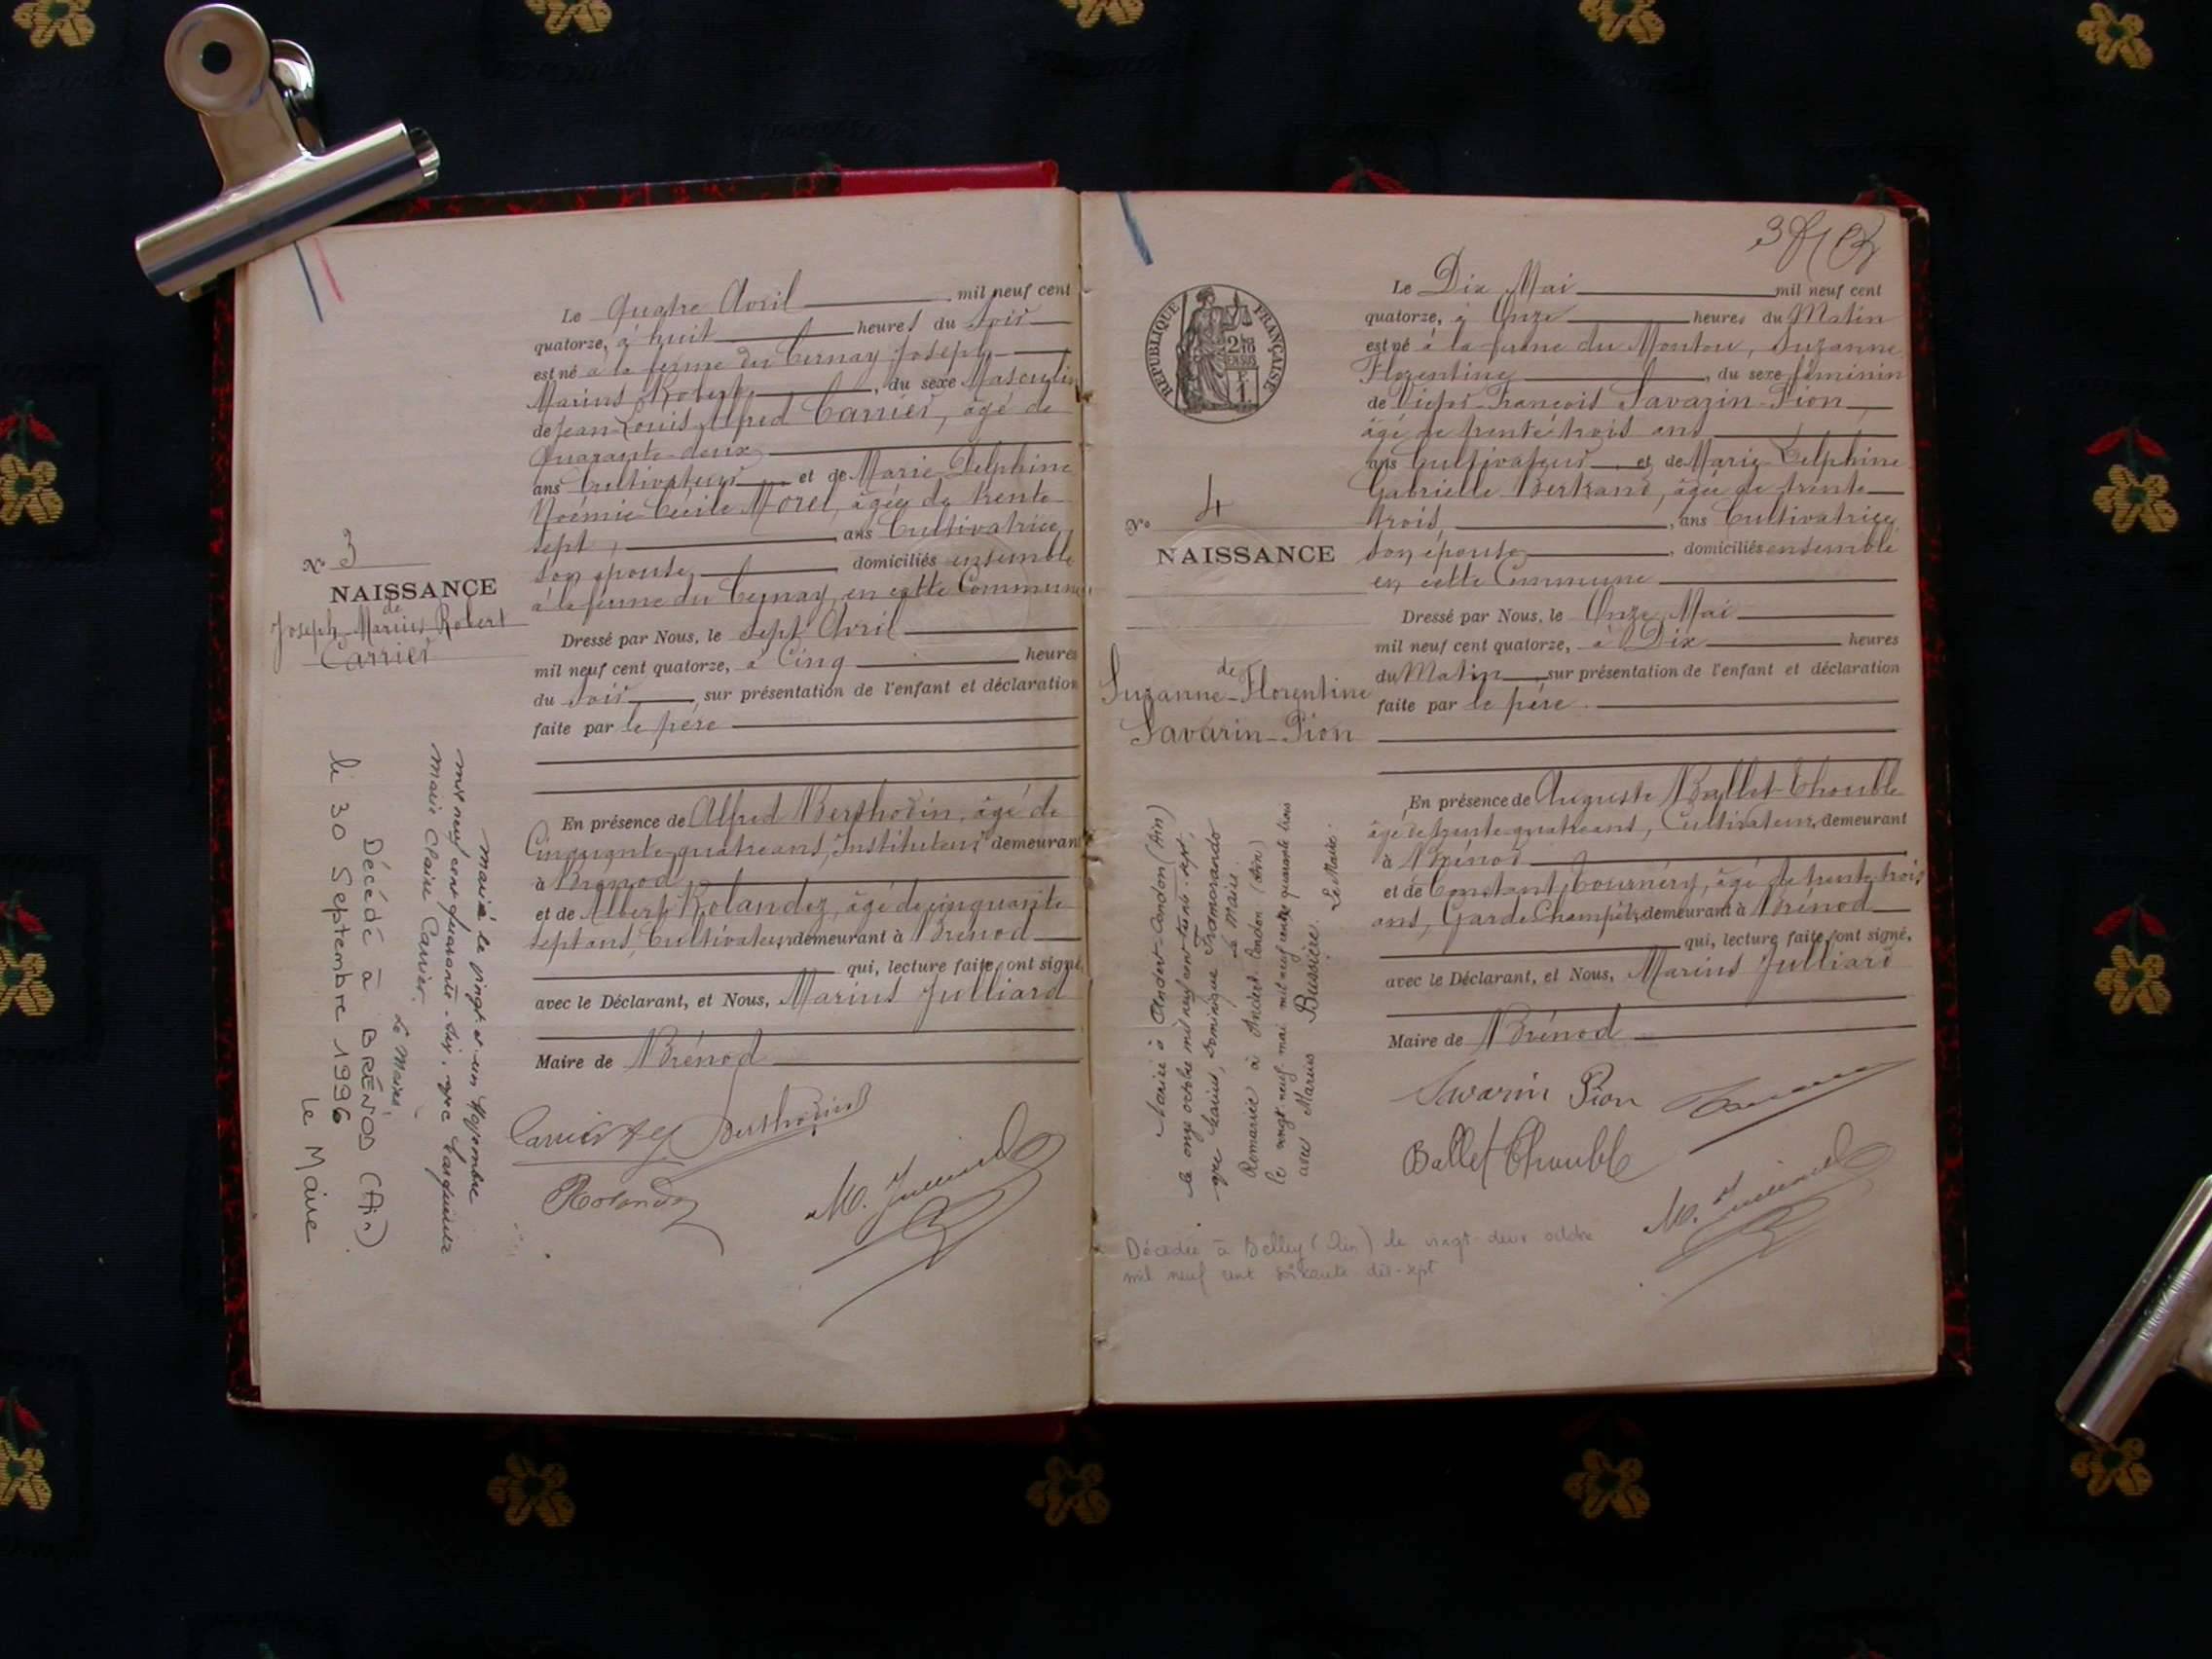 Le Quatre Avril mil neuf cent
quatorze, à huit heures du Soir
est né à la ferme du Cernay Joseph
Marius Robert, du sexe Masculin
de Jean-Louis Alfred Carrier, âgé de
Quarante-deux
ans Cultivateur et de Marie-Delphine
Noémie Cécile Morel, âgée de trente
sept, ans Cultivatrice
son épouse, domiciliés ensemble
à la ferme du Cernay, en cette Commune
Dressé par Nous, le sept Avril
mil neuf cent quatorze, à Cinq heures
du soir, sur présentation de l'enfant et déclaration
faite par le père
En présence de Alfred Berthodin, âgé de
Cinquante-quatre ans, Instituteur demeurant
à Brénod
et de Albert Rolandez, âgé de cinquante
sept ans, Cultivateur, demeurant à Brénod
qui, lecture faite, ont signé,
avec le Déclarant, et Nous, Marius Julliard
Maire de Brénod
Berthodin
M. Julliard
No 3
NAISSANCE
de
Joseph-Marius Robert
Carrier
Marié le vingt et un Novembre
mil neuf cent quarante-six, avec
Marie Claire Carrier.
Le Maire,
Décédé à BRÉNOD (Ain)
le 30 Septembre 1996
Le Maire
3
RÉPUBLIQUE FRANÇAISE
Le Dix Mai mil neuf cent
quatorze, à Onze heures du Matin
est né à la ferme du Montou, Suzanne
Florentine, du sexe féminin
de Victor-François Savarin-Pion
âgé de trente trois ans
ans Cultivateur et de Marie-Delphine
Gabrielle Bertrand, âgée de trente
trois, ans Cultivatrice
son épouse, domiciliés ensemble
en cette Commune
Dressé par Nous, le Onze Mai
mil neuf cent quatorze, à Dix heures
du Matin sur présentation de l'enfant et déclaration
faite par le père
En présence de Auguste Ballet-Thouble
âgé de trente-quatre ans, Cultivateur, demeurant
à Brénod
et de Constant Tournéry, âgé de trente-trois
ans, Garde Champêtre, demeurant à Brénod
qui, lecture faite, ont signé,
avec le Déclarant, et Nous, Marius Julliard
Maire de Brénod
Savarin Pion
Ballet Thouble
M. Julliard
No 4
NAISSANCE
de
Suzanne-Florentine
Savarin-Pion
Mariée à Andert-Condon (Ain)
le onze octobre mil neuf cent trente-sept,
avec Marius, Dominique Framorando
Le Maire.
Remariée à Andert Condon (Ain)
le vingt-neuf mai mil neuf cent quarante trois
avec Marius Bussière.
Le Maire.
Décédée à Belley (Ain) le vingt-deux octobre
mil neuf cent soixante dix-sept